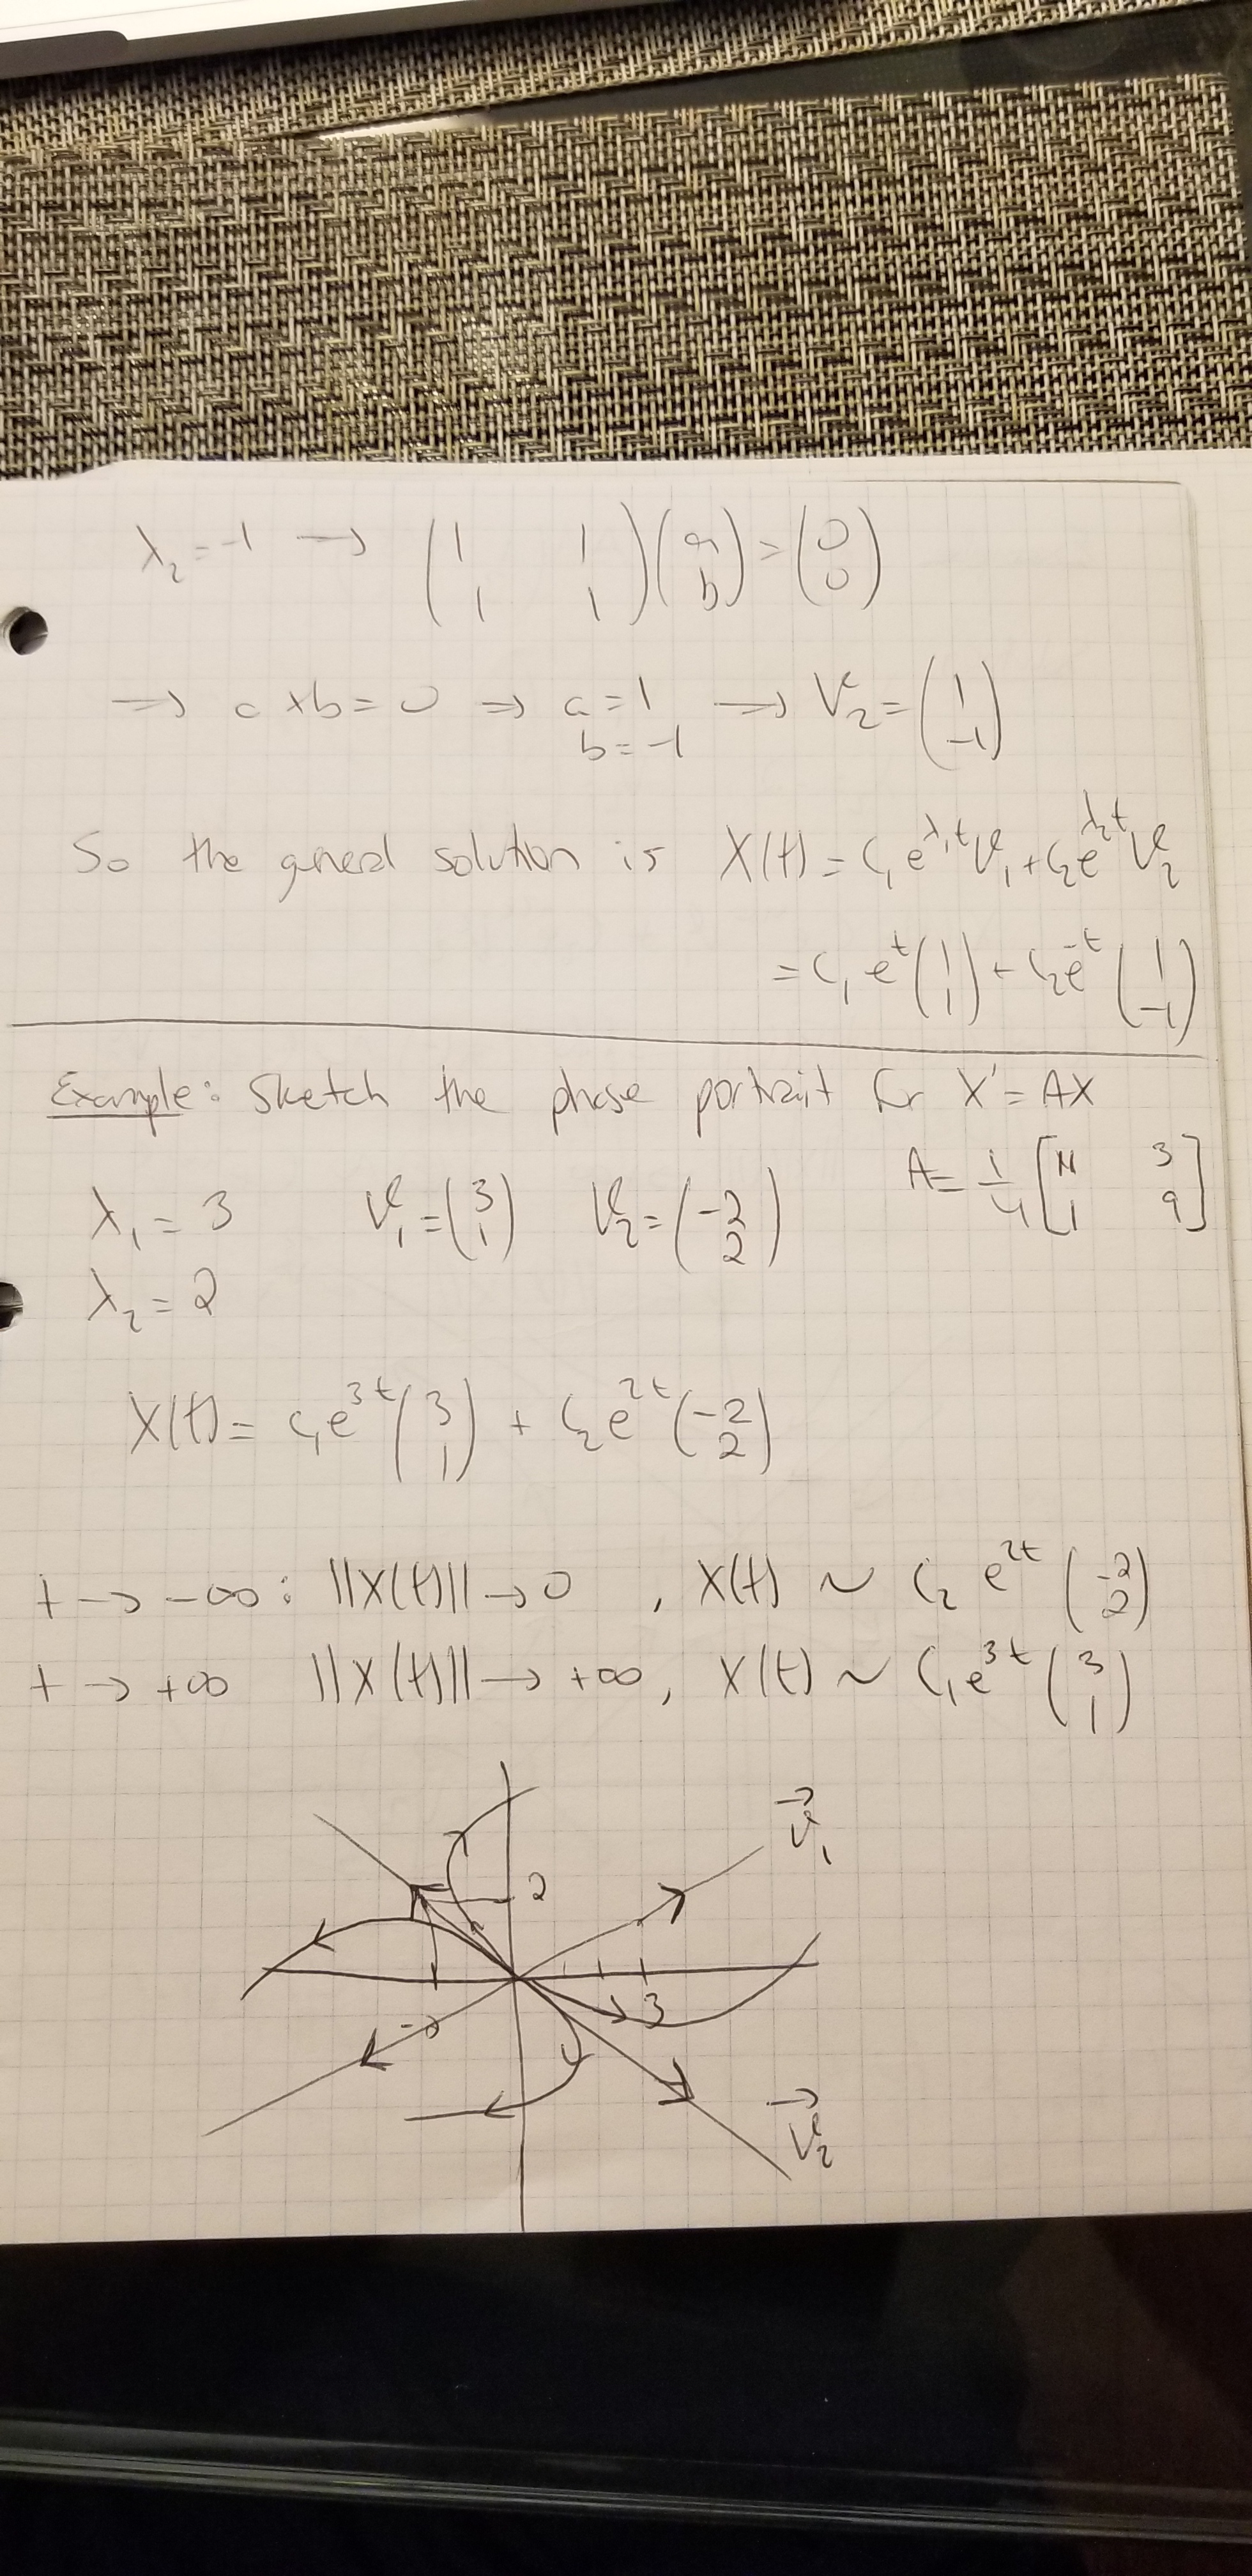 λ₂ = -1 → (1 1; 1 1)(a; b) = (0; 0)
→ a + b = 0 ⇒ a = 1 b = -1 → V₂ = (1; -1)
So the general solution is X(t) = c₁e^{λ₁t}V₁ + c₂e^{λ₂t}V₂
= c₁e^t(1; 1) + c₂e^{-t}(1; -1)
Example: Sketch the phase portrait for X' = AX
A = 1/4 [11 3; 1 9]
λ₁ = 3 V₁ = (3; 1) V₂ = (-2; 2)
λ₂ = 2
X(t) = c₁e^{3t}(3; 1) + c₂e^{2t}(-2; 2)
t → -∞: ||X(t)|| → 0, X(t) ~ c₂e^{2t}(-2; 2)
t → +∞ ||X(t)|| → +∞, X(t) ~ c₁e^{3t}(3; 1)
V₁
2
3
V₂